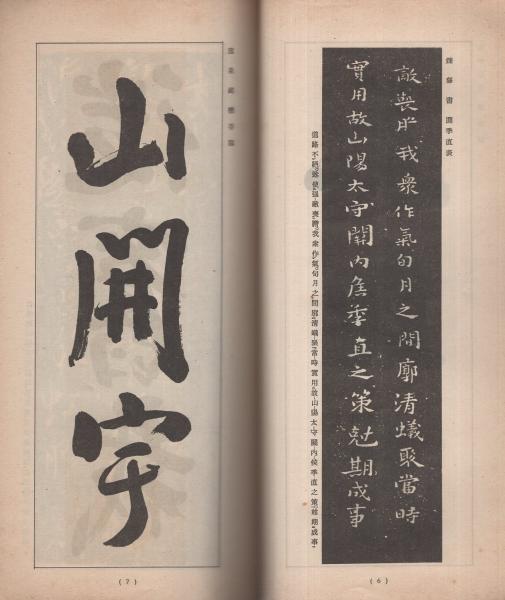 鍾繇書 薦季直表
敵喪膽我衆作氣旬月之間廓清蟻聚當時
實用故山陽太守關內侯季直之策尅期成事
道路不絕遂使強敵喪膽我衆作氣旬月之間廓清蟻聚當時實用故山陽太守關內侯季直之策尅期成事
(6)
山開宇
(7)